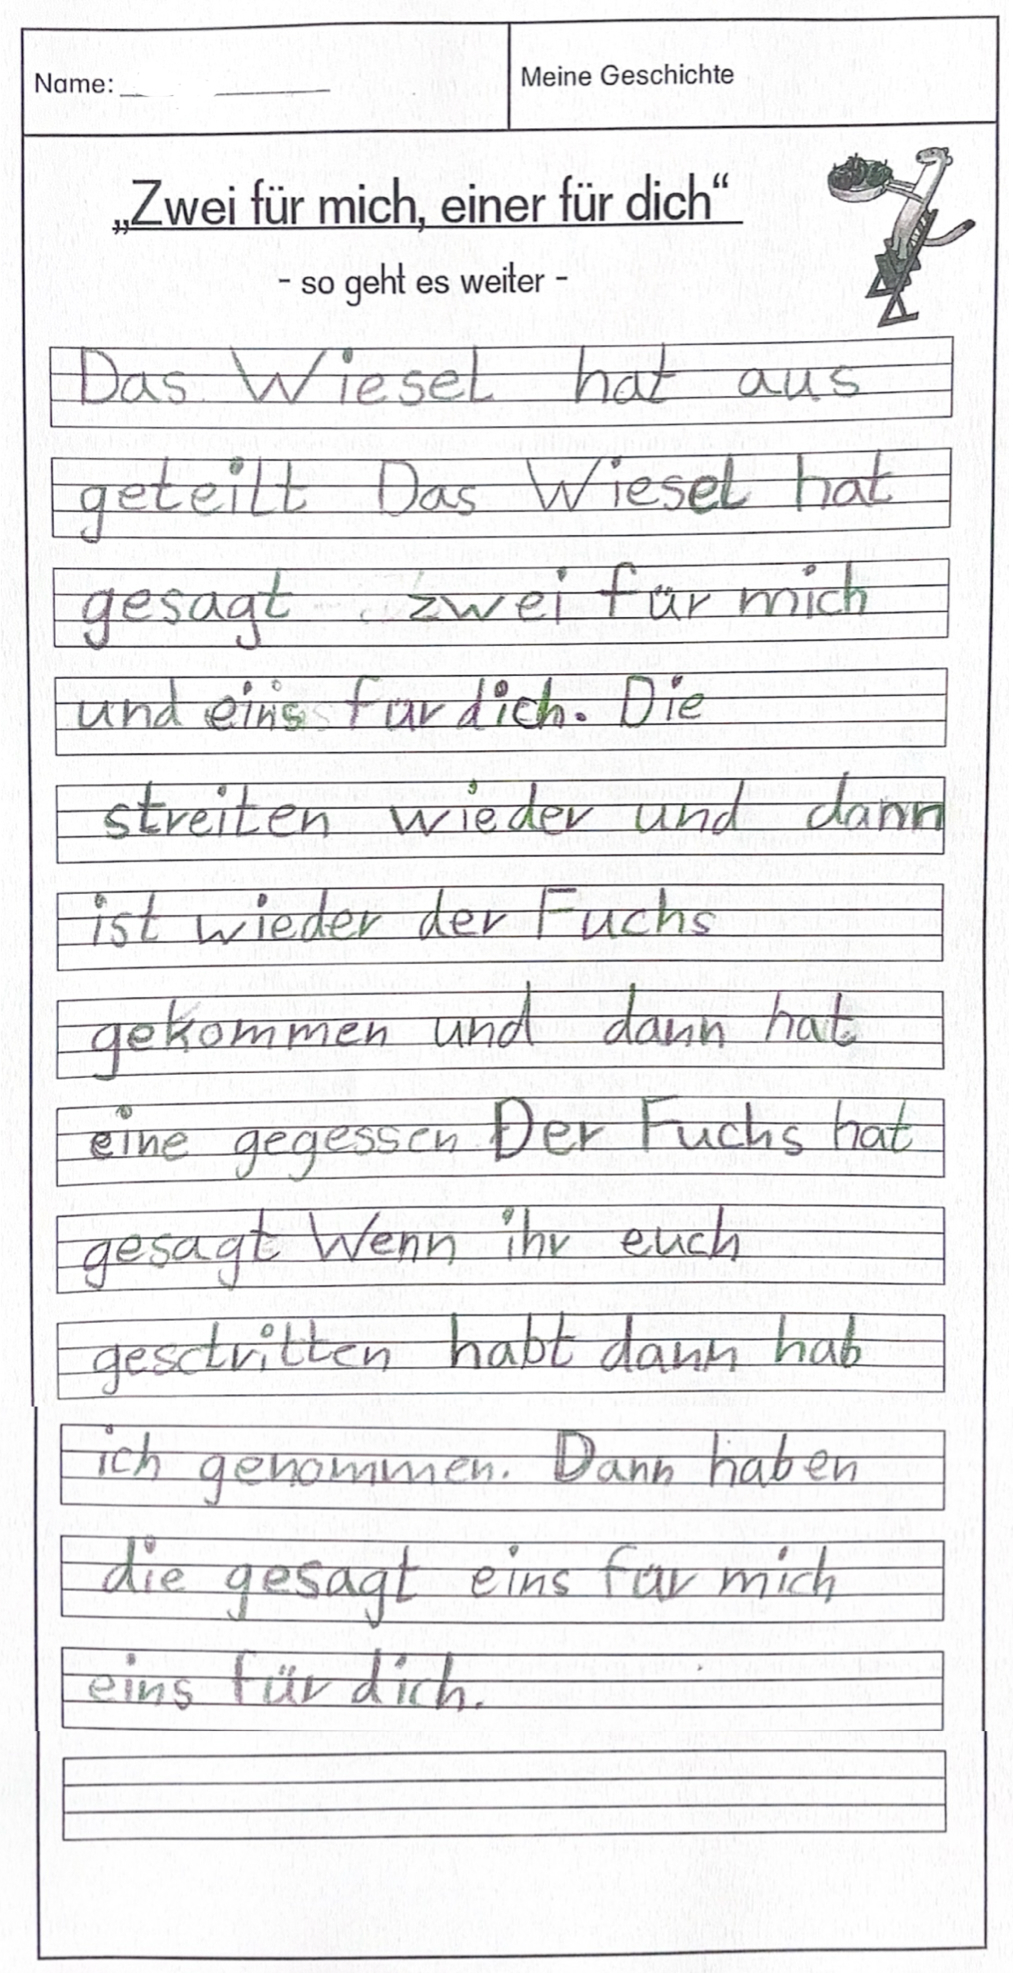 Name:
Meine Geschichte
„Zwei für mich, einer für dich“
- so geht es weiter -
Das Wiesel hat aus
geteilt Das Wiesel hat
gesagt zwei für mich
und eins für dich. Die
streiten wieder und dann
ist wieder der Fuchs
gekommen und dann hat
eine gegessen Der Fuchs hat
gesagt Wenn ihr euch
gesctritten habt dann hab
ich genommen. Dann haben
die gesagt eins für mich
eins für dich.